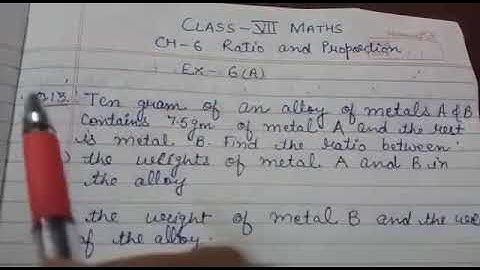 CLASS-VII MATHS
CH-6 Ratio and Proportion
Ex-6(A)
Q13. Ten gram of an alloy of metals A & B
contains 7.5gm of metal A and the rest
is metal B. Find the ratio between:
) the weights of metal A and B in
the alloy
the weight of metal B and the
of the alloy.